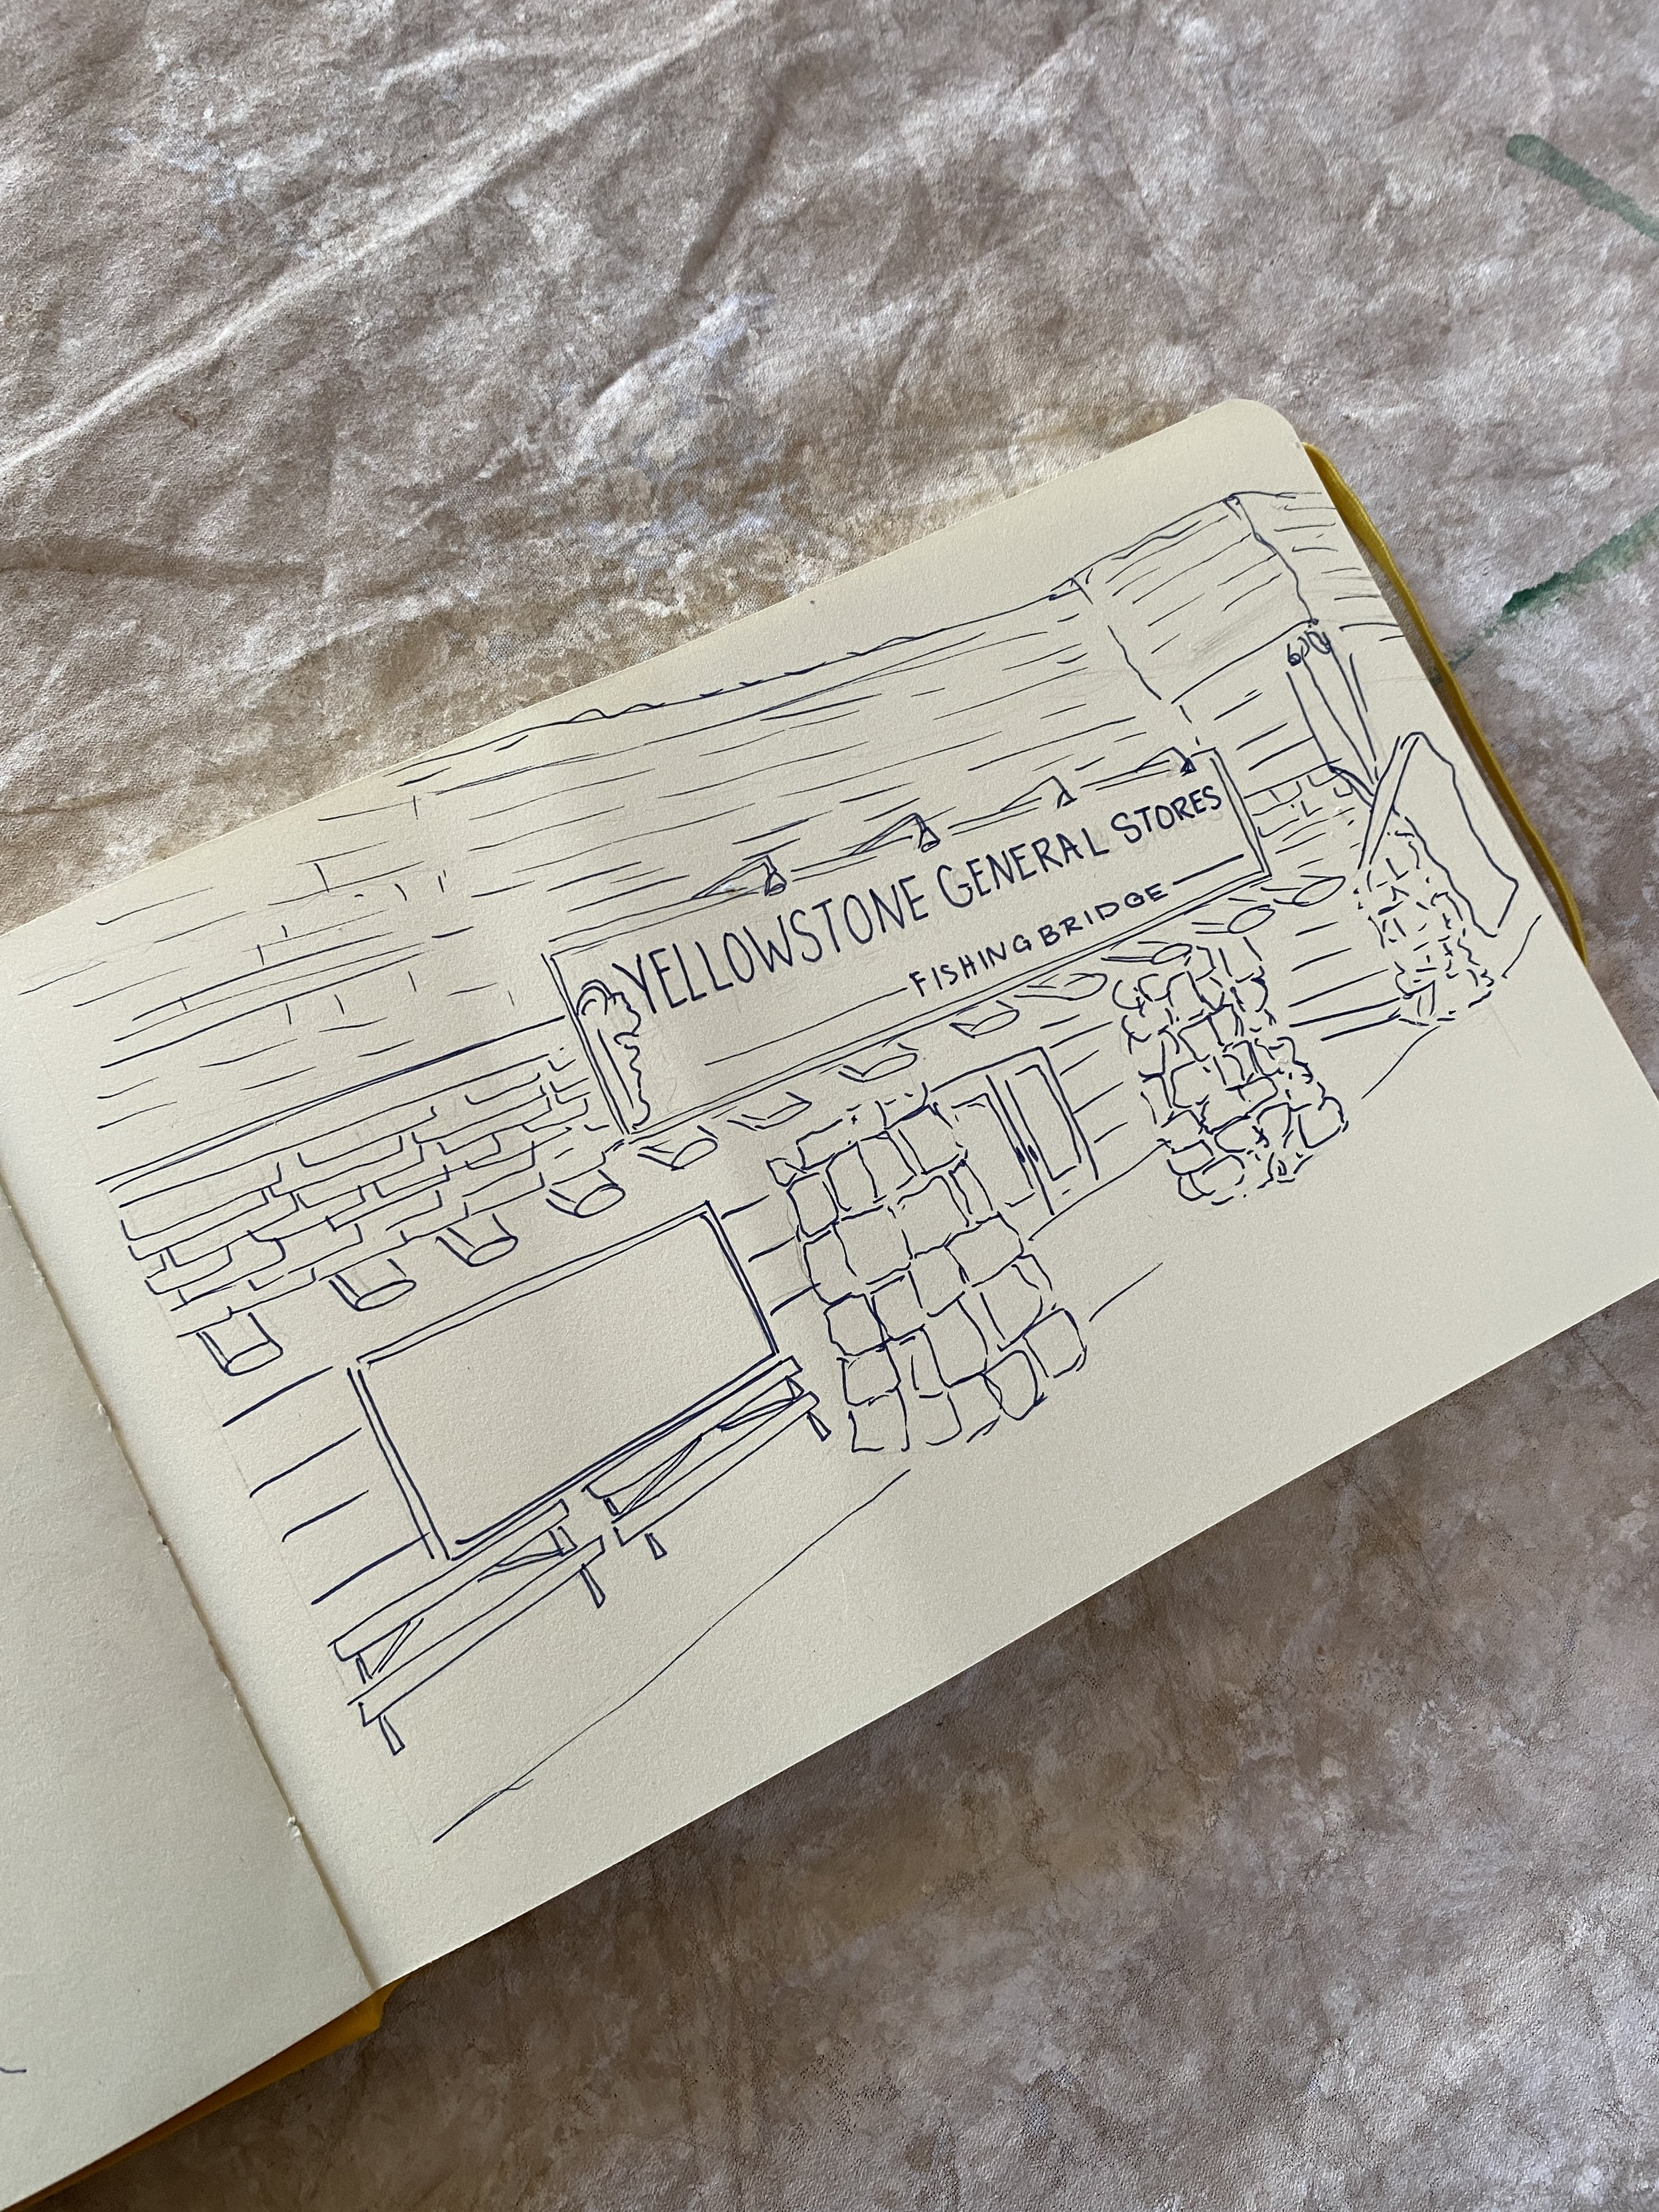 YELLOWSTONE GENERAL STORES
FISHING BRIDGE